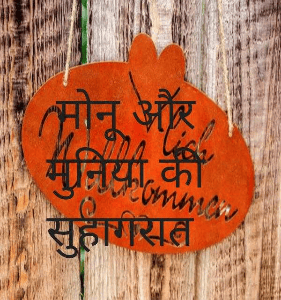 मोनू और
मुनिया की
सुहागरात
Herzlich
Willkommen